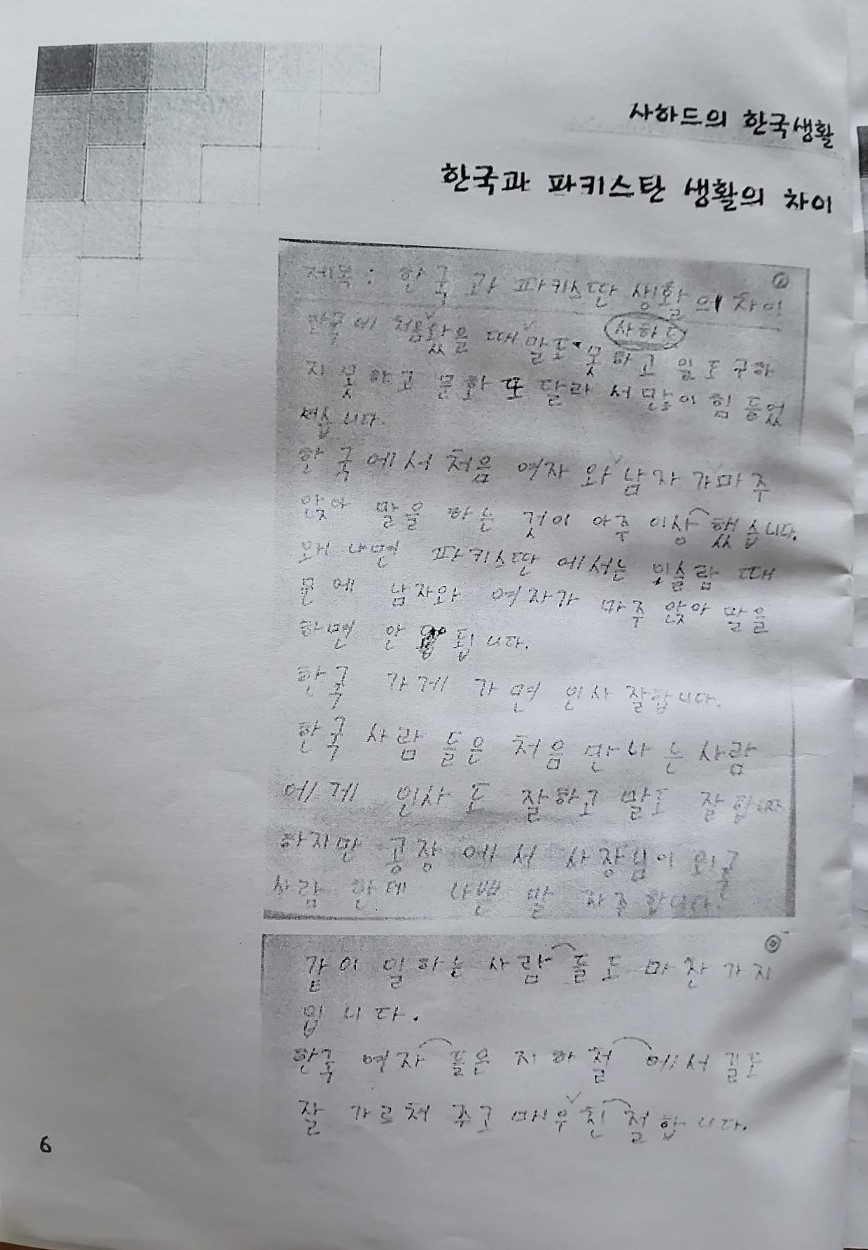 사하드의 한국생활
한국과 파키스탄 생활의 차이
제목 : 한국과 파키스탄 생활의 차이
사하드
한국에 처음 왔을 때 말도 못하고 일도 구하
지 못하고 문화 또 달라서 많이 힘 들었
습니다.
한국에서 처음 여자 와 남자 가 마주
앉아 말을 하는 것이 아주 이상 했습니다.
왜냐면 파키스탄 에서는 이슬람 때
문에 남자와 여자가 마주 앉아 말을
하면 안 됩니다.
한국 가게 가면 인사 잘합니다.
한국 사람 들은 처음 만나는 사람
에게 인사 도 잘하고 말도 잘
하지만 공장 에서 사장님이 외국
사람 한테 나쁜 말 자주 합니다.
같이 일하는 사람 들도 마찬가지
입니다.
한국 여자 들은 지하철 에서 길도
잘 가르쳐 주고 매우 친절합니다.
6